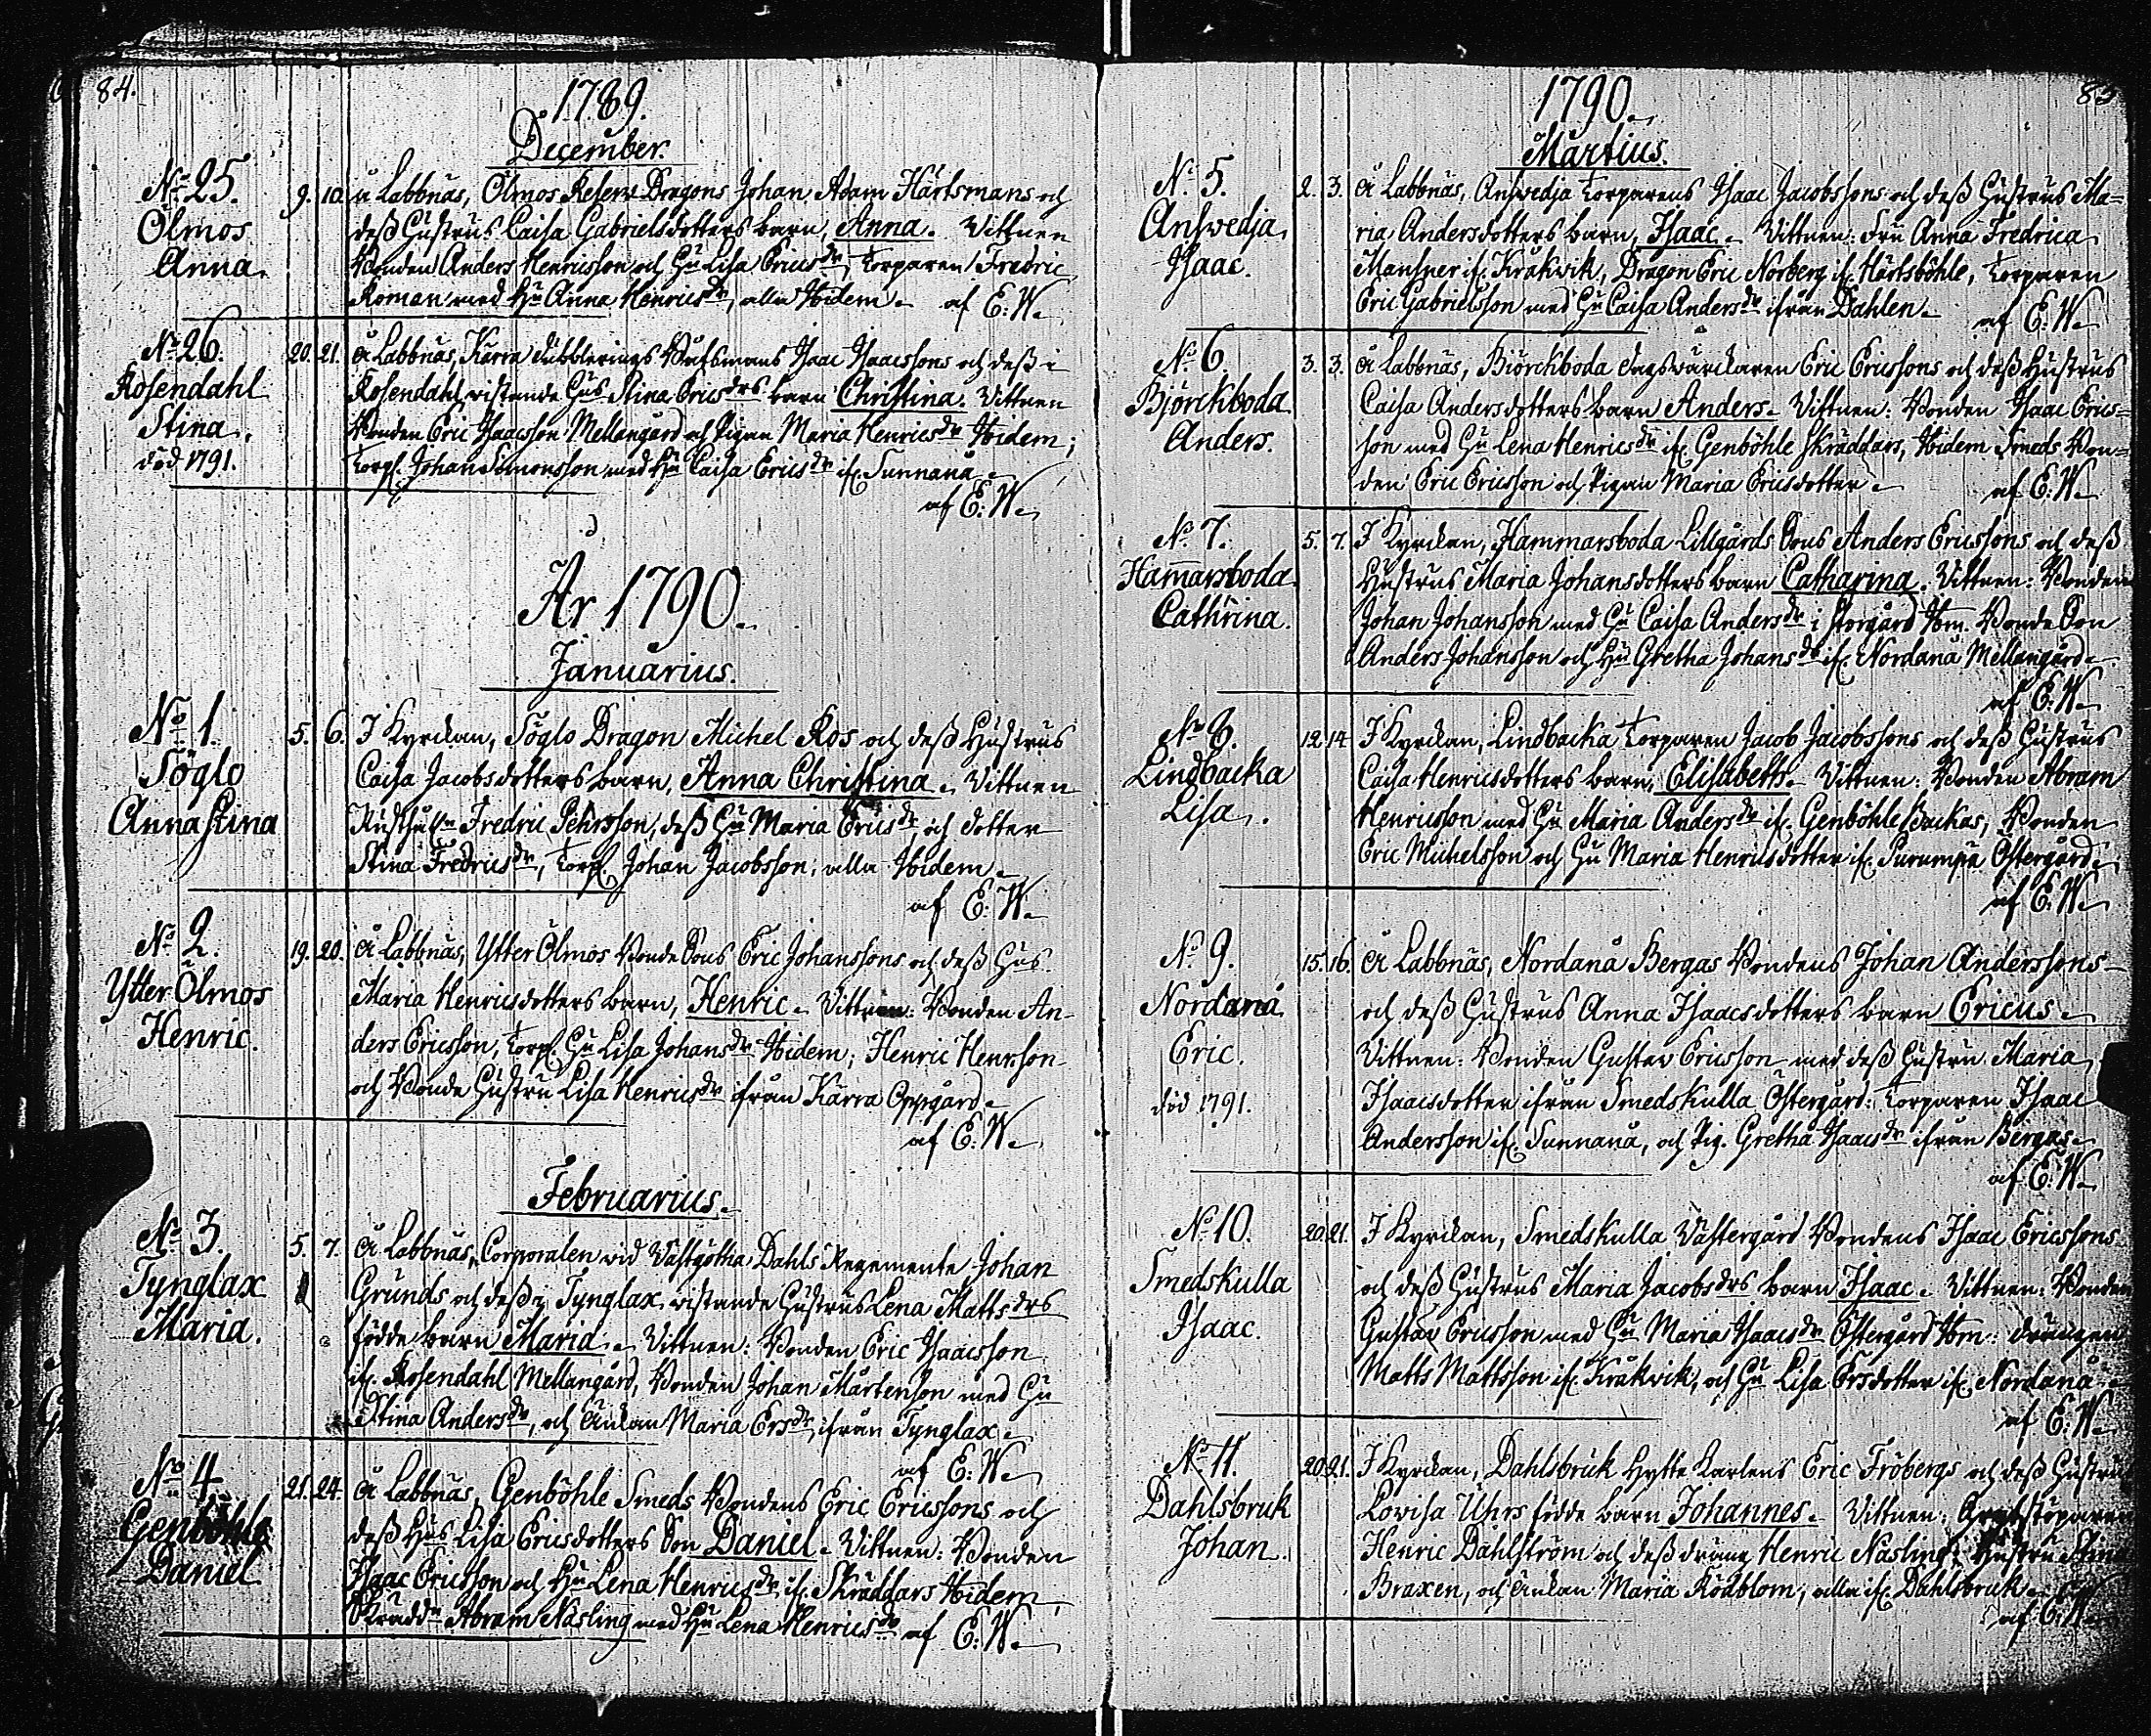 84.
1789.
December.
No 25.
Ölmos
Anna.
9. 10. å Labbnäs, Ölmos Reserv Dragons Johan Adam Hårtsmans och
dess Hustrus Caisa Gabrielsdotters barn, Anna. Vittnen
Bonden Anders Henricsson och Hu Lisa Ericsdr, Torparen Fredric
Roman med Hu Anna Henricsdr, alla Ibidem. af E: W.
No 26.
Rosendahl
Stina.
död 1791.
20. 21. å Labbnäs, Kärra Dubblerings Båtsmans Isaac Isaacssons och dess i
Rosendahl vistande Hus Stina Ericsdrs barn Christina. Vittnen
Bonden Eric Isaacsson Mellangård och Pigan Maria Henricsdr Ibidem;
Torp. Johan Simonsson med Hu Caisa Ericsdr if. Sunnanå.
af E: W.
År 1790.
Januarius.
No 1.
Söglo
Anna Stina
5. 6. I Kyrckan, Söglo Dragon Michel Ros och dess Hustrus
Caisa Jacobsdotters barn, Anna Christina. Vittnen
Rusthn Fredric Pehrsson, dess Hu Maria Ericsdr, och dotter
Stina Fredricsdr, Torp. Johan Jacobsson, alla Ibidem.
af E: W.
No 2.
Ytter Ölmos
Henric.
19. 20. å Labbnäs, Ytter Ölmos Bonde Sons Eric Johanssons och dess Hus
Maria Henricsdotters barn, Henric. Vittnen: Bonden An-
ders Ericsson, Torp. Hu Lisa Johansdr Ibidem; Henric Henrson
och Bonde Hustru Lisa Henricsdr ifrån Kärra Oppgård.
af E: W.
Februarius.
No 3.
Tynglax
Maria.
5. 7. å Labbnäs, Corporalen vid Västgötha Dahls Regemente Johan
Grunds och dess i Tynglax vistande Hustrus Lena Mattsdrs
födde barn Maria. Vittnen: Bonden Eric Isaacsson
if. Rosendahl Mellangård, Bonden Johan Mårtenson med Hu
Stina Andersdr, och Änkan Maria Ersdr, ifrån Tynglax.
af E: W.
No 4.
Genböhle
Daniel
21. 24. å Labbnäs, Genböhle Smeds Bondens Eric Ericssons och
dess Hus Lisa Ericsdotters Son Daniel. Vittnen: Bonden
Isaac Ericsson och Hu Lena Henricsdr if. Skräddars Ibidem,
Skrädd. Abram Näsling med Hu Lena Henricsdr af E: W.
85
1790.
Martius.
No 5.
Ansvedja
Isaac.
2. 3. å Labbnäs, Ansvedja Torparens Isaac Jacobssons och dess Hustrus Ma-
ria Andersdotters barn, Isaac. Vittnen: Fru Anna Fredrica
Mansner if. Kråkvik, Dragon Eric Norberg if. Hårtsböhle, Torparen
Eric Gabrielsson med Hu Caisa Andersdr ifrån Dahlen.
af E: W.
No 6.
Björckboda
Anders.
3. 3. å Labbnäs, Biörckboda dagsvärckaren Eric Ericssons och dess Hustrus
Caisa Andersdotters barn Anders. Vittnen: Bonden Isaac Erics-
son med Hu Lena Henricsdr if. Genböhle Skräddars, Ibidem Smeds Bon-
den Eric Ericsson och Pigan Maria Ericsdotter.
af E: W.
No 7.
Hamarsboda
Cathrina.
5. 7. I Kyrckan, Hammarsboda Lillgårds Sons Anders Ericssons och dess
Hustrus Maria Johansdotters barn Catharina. Vittnen: Bonden
Johan Johansson med Hu Caisa Andersdr i Storgård Ibm. Bonde Son
Anders Johansson och Hu Gretha Johansdr if. Nordanå Mellangård.
af E: W.
No 8.
Lindbacka
Lisa.
12. 14 I Kyrckan, Lindbacka Torparen Jacob Jacobssons och dess Hustrus
Caisa Henricsdotters barn, Elisabeth. Vittnen: Bonden Abram
Henricsson med Hu Maria Andersdr if. Genböhle Backas, Bonden
Eric Michelsson och Hu Maria Henricsdotter if. Purumpä Östergård.
af E: W.
No 9.
Nordanå
Eric.
död 1791.
15. 16. å Labbnäs, Nordanå Bergas Bondens Johan Anderssons
och dess Hustrus Anna Isaacsdotters barn Ericus.
Vittnen: Bonden Gustav Ericsson med dess Hustru Maria
Isaacsdotter ifrån Smedskulla Östergård: Torparen Isaac
Andersson if. Sunnanå, och Pig. Gretha Isaacsdr ifrån Bergas.
af E: W.
No 10.
Smedskulla
Isaac.
20. 21. I Kyrckan, Smedskulla Västergård Bondens Isaac Ericssons
och dess Hustrus Maria Jacobsdrs barn Isaac. Vittnen: Bonden
Gustav Ericsson med Hu Maria Isaacsdr Östergård Ibm: drängen
Matts Mattsson if. Kråkvik, och Hu Lisa Ersdotter if. Nordanå.
af E: W.
No 11.
Dahlsbruk
Johan.
20. 21. I Kyrckan, Dahlsbruk Hytte Karlens Eric Fröbergs och dess Hustrus
Lovisa Uhrs födde barn Johannes. Vittnen:
Henric Dahlström och dess dräng Henric Nasling, Hustru Stina
Braxen, och Änkan Maria Rödblom, alla if. Dahlsbruk.
af E: W.